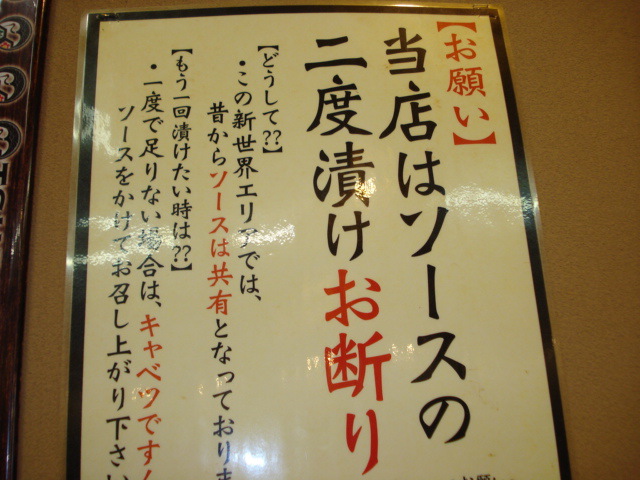 【お願い】
当店はソースの
二度漬けお断り
【どうして??】
・この新世界エリアでは、
昔からソースは共有となっておりま
【もう一回漬けたい時は??】
・一度で足りない場合は、キャベツです
ソースをかけてお召し上がり下さい
お願